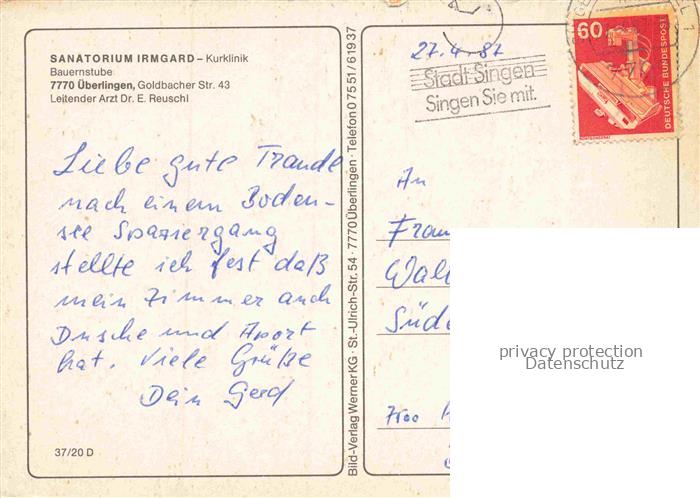 SANATORIUM IRMGARD – Kurklinik
Bauernstube
7770 Überlingen, Goldbacher Str. 43
Leitender Arzt Dr. E. Reuschl
Liebe gute Traude
nach einem Boden-
see Spaziergang
stellte ich fest daß
mein Zimmer auch
Dusche und Abort
hat. Viele Grüße
Dein Gerd
37/20 D
Bild-Verlag Werner KG · St.-Ulrich-Str. 54 · 7770 Überlingen · Telefon 0 75 51/6 19 37
27.4.87
Stadt Singen
Singen Sie mit.
60
DEUTSCHE BUNDESPOST
An
Frau
privacy protection
Datenschutz